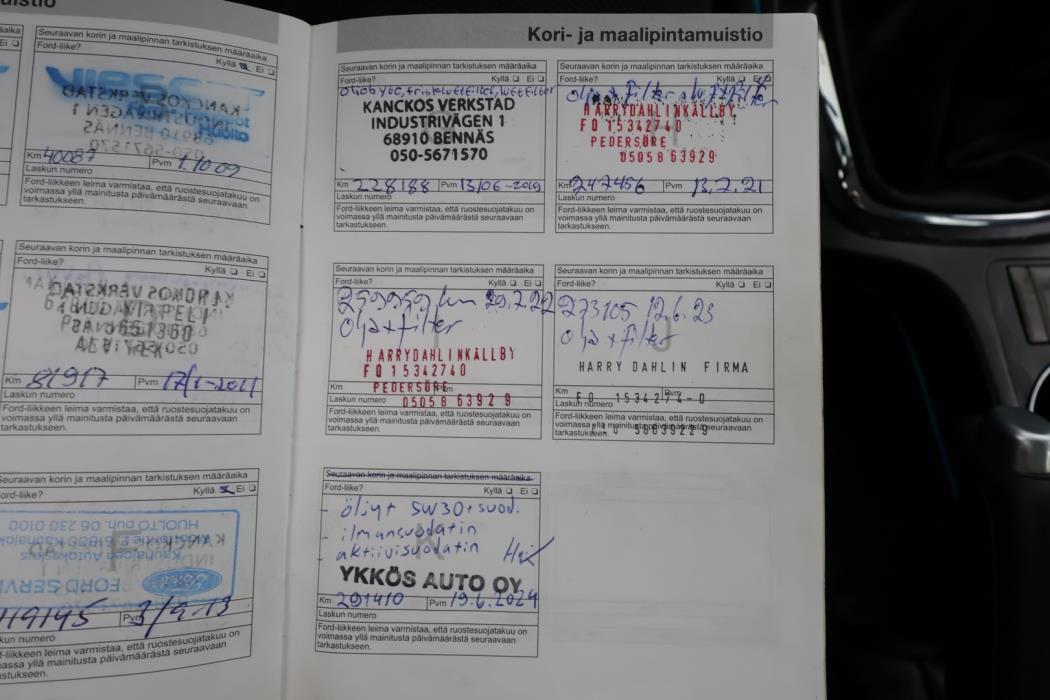 uistio
Seuraavan korin ja maalipinnan tarkistuksen määräaika
Ford-liike?
Kyllä Ei
Km 40087 Pvm 1.10 09
Laskun numero
Ford-liikkeen leima varmistaa, että ruostesuojatakuu on
voimassa yllä mainitusta päivämäärästä seuraavaan
tarkastukseen.
Seuraavan korin ja maalipinnan tarkistuksen määräaika
Ford-liike?
Kyllä Ei
Km 81917 Pvm 17/1-2011
Laskun numero
Ford-liikkeen leima varmistaa, että ruostesuojatakuu on
voimassa yllä mainitusta päivämäärästä seuraavaan
tarkastukseen.
Seuraavan korin ja maalipinnan tarkistuksen määräaika
Ford-liike?
Kyllä Ei
119195 Pvm 3/9.13
skun numero
Ford-liikkeen leima varmistaa, että ruostesuojatakuu on
voimassa yllä mainitusta päivämäärästä seuraavaan
tarkastukseen.
Kori- ja maalipintamuistio
Seuraavan korin ja maalipinnan tarkistuksen määräaika
Ford-liike? Kyllä Ei
KANCKOS VERKSTAD
INDUSTRIVÄGEN 1
68910 BENNÄS
050-5671570
Km 228188 Pvm 13/06-2019
Laskun numero
Ford-liikkeen leima varmistaa, että ruostesuojatakuu on
voimassa yllä mainitusta päivämäärästä seuraavaan
tarkastukseen.
Seuraavan korin ja maalipinnan tarkistuksen määräaika
Ford-liike? Kyllä Ei
Olja + filter
HARRYDAHLINKÄLLBY
FO 15342740
PEDERSÖRE
05058 63929
Km 247456 Pvm 13.7.21
Laskun numero
Ford-liikkeen leima varmistaa, että ruostesuojatakuu on
voimassa yllä mainitusta päivämäärästä seuraavaan
tarkastukseen.
Seuraavan korin ja maalipinnan tarkistuksen määräaika
Ford-liike? Kyllä Ei
259959 km 29.7.22
olja + filter
HARRYDAHLINKÄLLBY
FO 15342740
PEDERSÖRE
05058 63929
Km Pvm
Laskun numero
Ford-liikkeen leima varmistaa, että ruostesuojatakuu on
voimassa yllä mainitusta päivämäärästä seuraavaan
tarkastukseen.
Seuraavan korin ja maalipinnan tarkistuksen määräaika
Ford-liike? Kyllä Ei
273105 12.6.23
olja + filter
HARRY DAHLIN FIRMA
Km Pvm
FO 1534274-0
Laskun numero
Ford-liikkeen leima varmistaa, että ruostesuojatakuu on
voimassa yllä mainitusta päivämäärästä seuraavaan
tarkastukseen.
Seuraavan korin ja maalipinnan tarkistuksen määräaika
Ford-liike? Kyllä Ei
- öljyt 5W30 + suod.
- ilmansuodatin
- aktiivisuodatin
YKKÖS AUTO OY
Km 291410 Pvm 19.6.2024
Laskun numero
Ford-liikkeen leima varmistaa, että ruostesuojatakuu on
voimassa yllä mainitusta päivämäärästä seuraavaan
tarkastukseen.